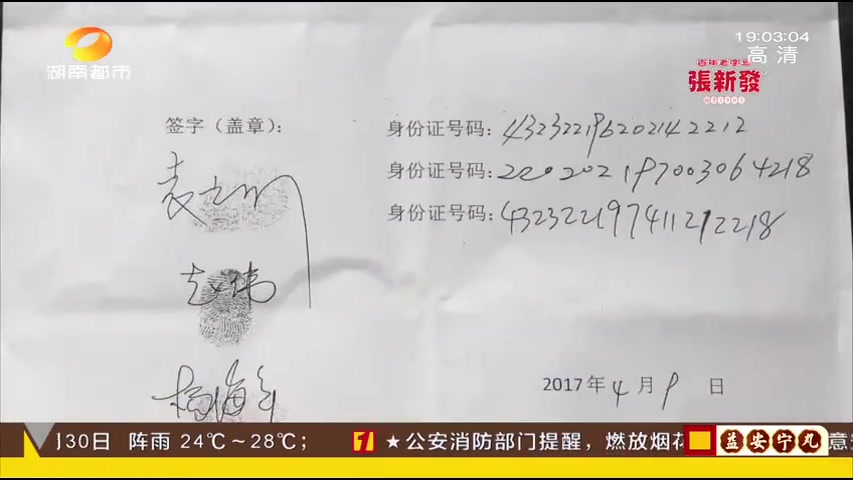 湖南都市
19:03:04
高清
百年老字号
張新發
签字（盖章）：
身份证号码：432322196202142212
身份证号码：220202197003064218
身份证号码：432322197411212218
赵伟
2017年4月9日
月30日 阵雨 24℃～28℃；
★公安消防部门提醒，燃放烟花
益安宁丸
意